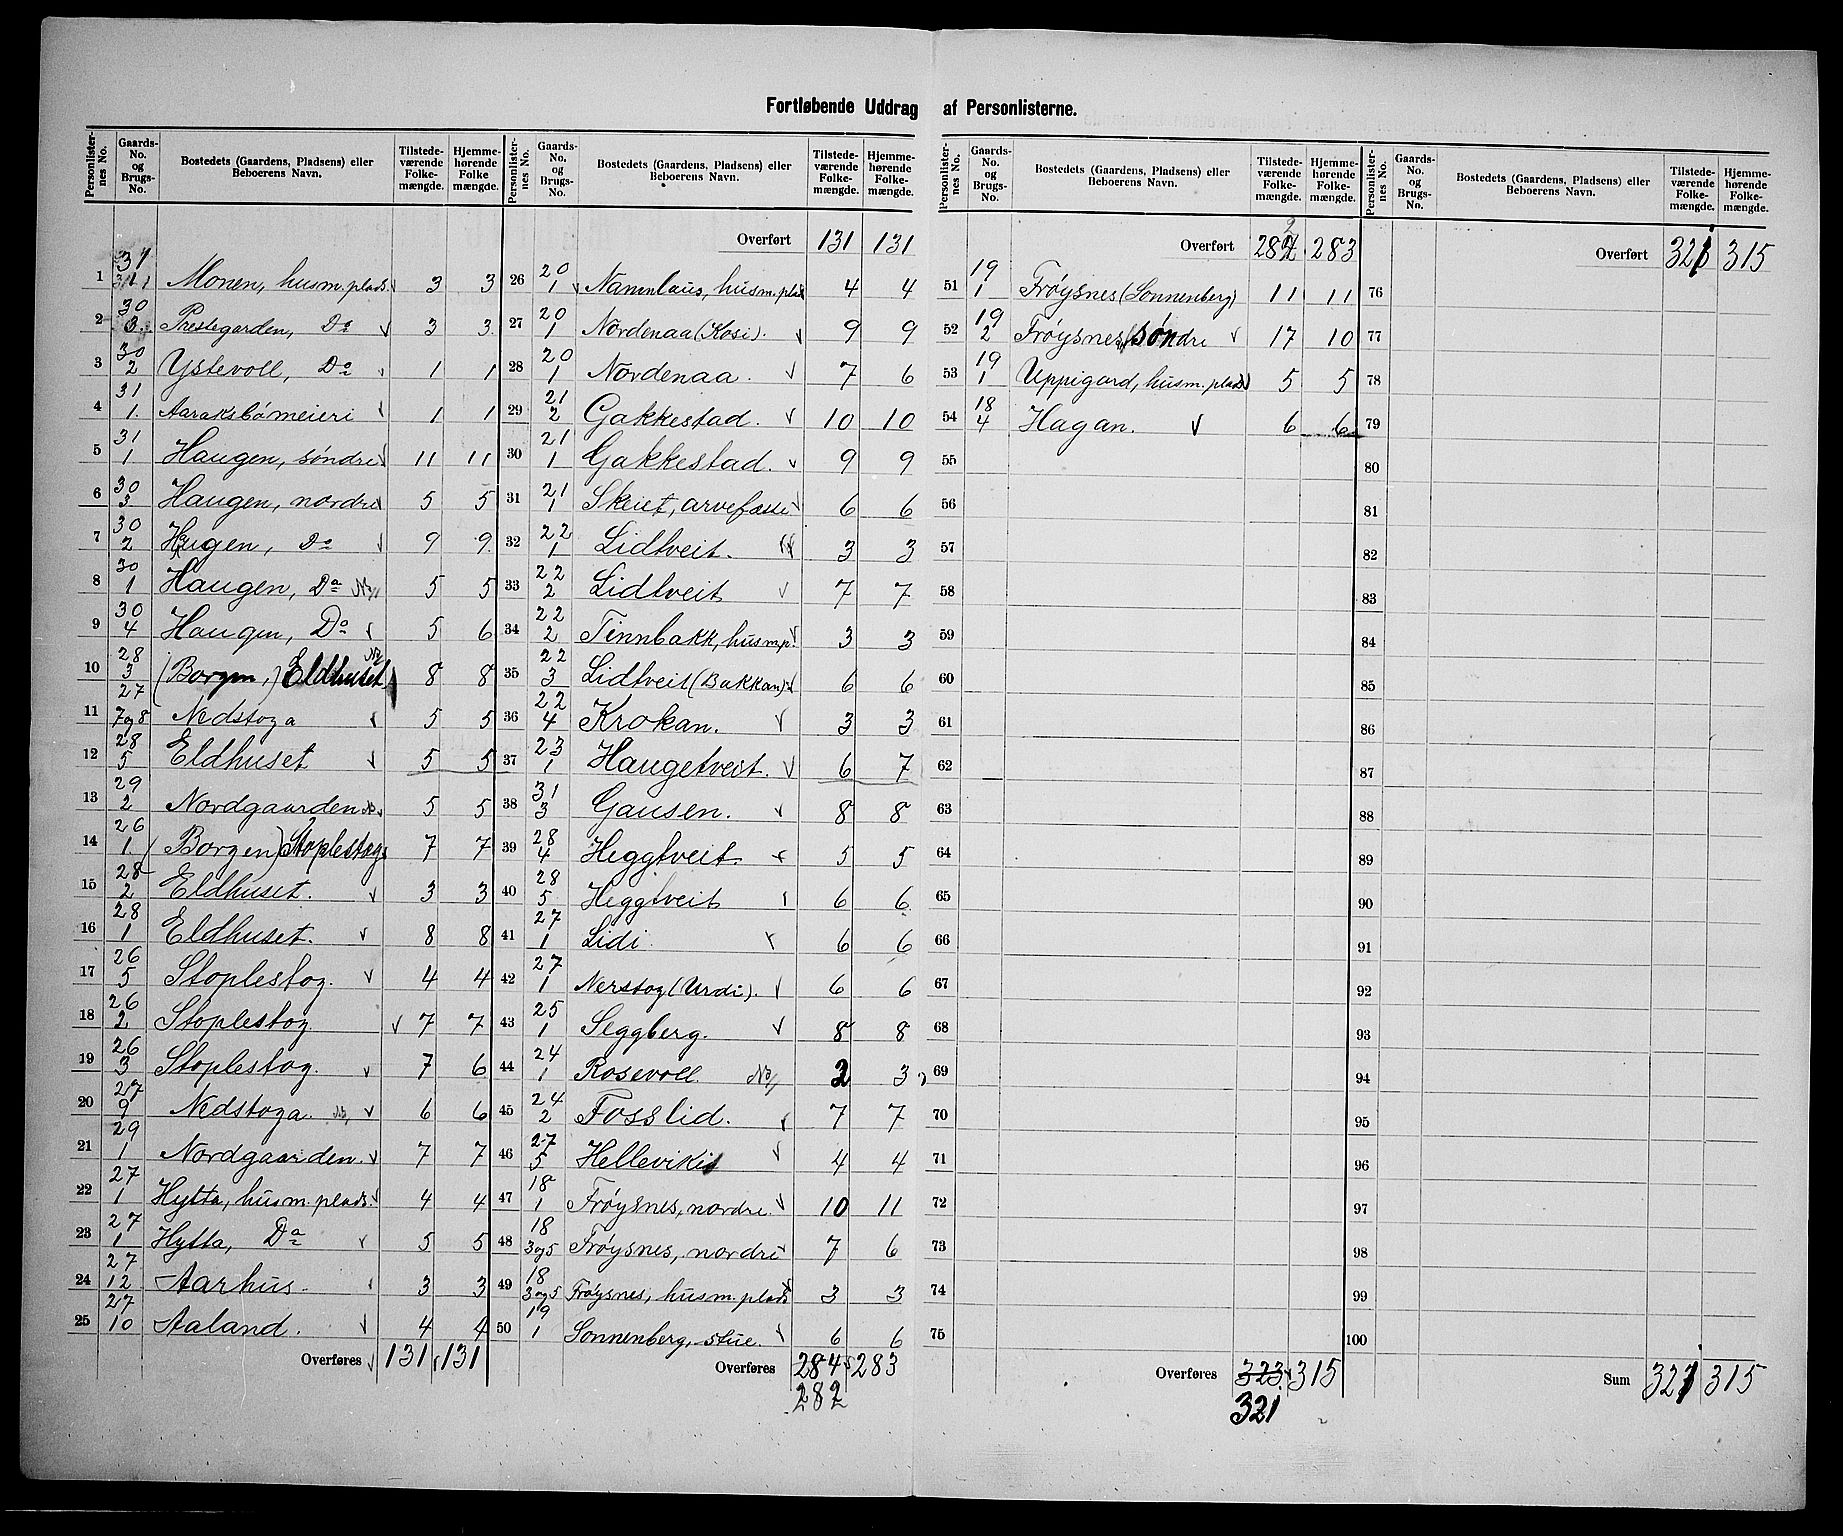 Fortløbende Uddrag af Personlisterne.
Personlister-nes No. | Gaards-No. og Brugs-No. | Bostedets (Gaardens, Pladsens) eller Beboerens Navn. | Tilstede-værende Folke-mængde. | Hjemme-hørende Folke mængde.
1 | 31 1 | Monen, husm.plads | 3 | 3
2 | 30 3 | Prestegarden, Do | 3 | 3
3 | 30 2 | Ystevoll, Do | 1 | 1
4 | 31 1 | Aaraksbømeieri | 1 | 1
5 | 31 1 | Haugen, søndre | 11 | 11
6 | 30 3 | Haugen, nordre | 5 | 5
7 | 30 2 | Haugen, Do | 9 | 9
8 | 30 1 | Haugen, Do | 5 | 5
9 | 30 4 | Haugen, Do | 5 | 6
10 | 28 3 | (Borgen,) Eldhuset | 8 | 8
11 | 27 7og8 | Nedstoga | 5 | 5
12 | 28 5 | Eldhuset | 5 | 5
13 | 29 2 | Nordgaarden | 5 | 5
14 | 26 1 | (Borgen) Stoplestog | 7 | 7
15 | 28 2 | Eldhuset. | 3 | 3
16 | 28 1 | Eldhuset. | 8 | 8
17 | 26 5 | Stoplestog. | 4 | 4
18 | 26 2 | Stoplestog | 7 | 7
19 | 26 3 | Stoplestog. | 7 | 6
20 | 27 9 | Nedstoga. | 6 | 6
21 | 29 1 | Nordgaarden. | 7 | 7
22 | 27 1 | Hytta, husm.plads. | 4 | 4
23 | 27 1 | Hytta, Do | 5 | 5
24 | 27 12 | Aarhus. | 3 | 3
25 | 27 10 | Aaland. | 4 | 4
Overføres 131 131
Personlister-nes No. | Gaards-No. og Brugs-No. | Bostedets (Gaardens, Pladsens) eller Beboerens Navn. | Tilstede-værende Folke-mængde. | Hjemme-hørende Folke-mængde.
Overført 131 131
26 | 20 1 | Namnlaus, husm.plad | 4 | 4
27 | 20 1 | Nordenaa (Kosi). | 9 | 9
28 | 20 1 | Nordenaa. | 7 | 6
29 | 21 2 | Gakkestad. | 10 | 10
30 | 21 1 | Gakkestad. | 9 | 9
31 | 21 1 | Skeiet, arvefæste | 6 | 6
32 | 22 1 | Lidtveit. | 3 | 3
33 | 22 2 | Lidtveit | 7 | 7
34 | 22 2 | Tinnbakk, husmp. | 3 | 3
35 | 22 3 | Lidtveit (Bakkan) | 6 | 6
36 | 22 4 | Krokan. | 3 | 3
37 | 23 1 | Haugetveit. | 6 | 7
38 | 31 3 | Gausen. | 8 | 8
39 | 28 4 | Heggtveit. | 5 | 5
40 | 28 5 | Heggtveit | 6 | 6
41 | 27 1 | Lidi. | 6 | 6
42 | 27 1 | Nerstog (Urdi). | 6 | 6
43 | 25 1 | Seggberg. | 8 | 8
44 | 24 1 | Rosevoll. | 2 | 3
45 | 24 2 | Fosslid. | 7 | 7
46 | 27 5 | Helleviki | 4 | 4
47 | 18 1 | Frøysnes, nordre. | 10 | 11
48 | 18 3og5 | Frøysnes, nordre | 7 | 6
49 | 18 3og5 | Frøysnes, husm.plads | 3 | 3
50 | 19 1 | Sonnenberg, stue. | 6 | 6
Overføres 284 283
282
Personlister-nes No. | Gaards-No. og Brugs-No. | Bostedets (Gaardens, Pladsens) eller Beboerens Navn. | Tilstede-værende Folke-mængde. | Hjemme-hørende Folke-mængde.
Overført 282 283
51 | 19 1 | Frøysnes (Sonnenberg) | 11 | 11
52 | 19 2 | Frøysnes, søndre | 17 | 10
53 | 19 1 | Uppigard, husm.plads | 5 | 5
54 | 18 4 | Hagan. | 6 | 6
55
56
57
58
59
60
61
62
63
64
65
66
67
68
69
70
71
72
73
74
75
Overføres 323 315
321
Personlister-nes No. | Gaards-No. og Brugs-No. | Bostedets (Gaardens, Pladsens) eller Beboerens Navn. | Tilstede-værende Folke-mængde. | Hjemme-hørende Folke-mængde.
Overført 321 315
76
77
78
79
80
81
82
83
84
85
86
87
88
89
90
91
92
93
94
95
96
97
98
99
100
Sum 321 315